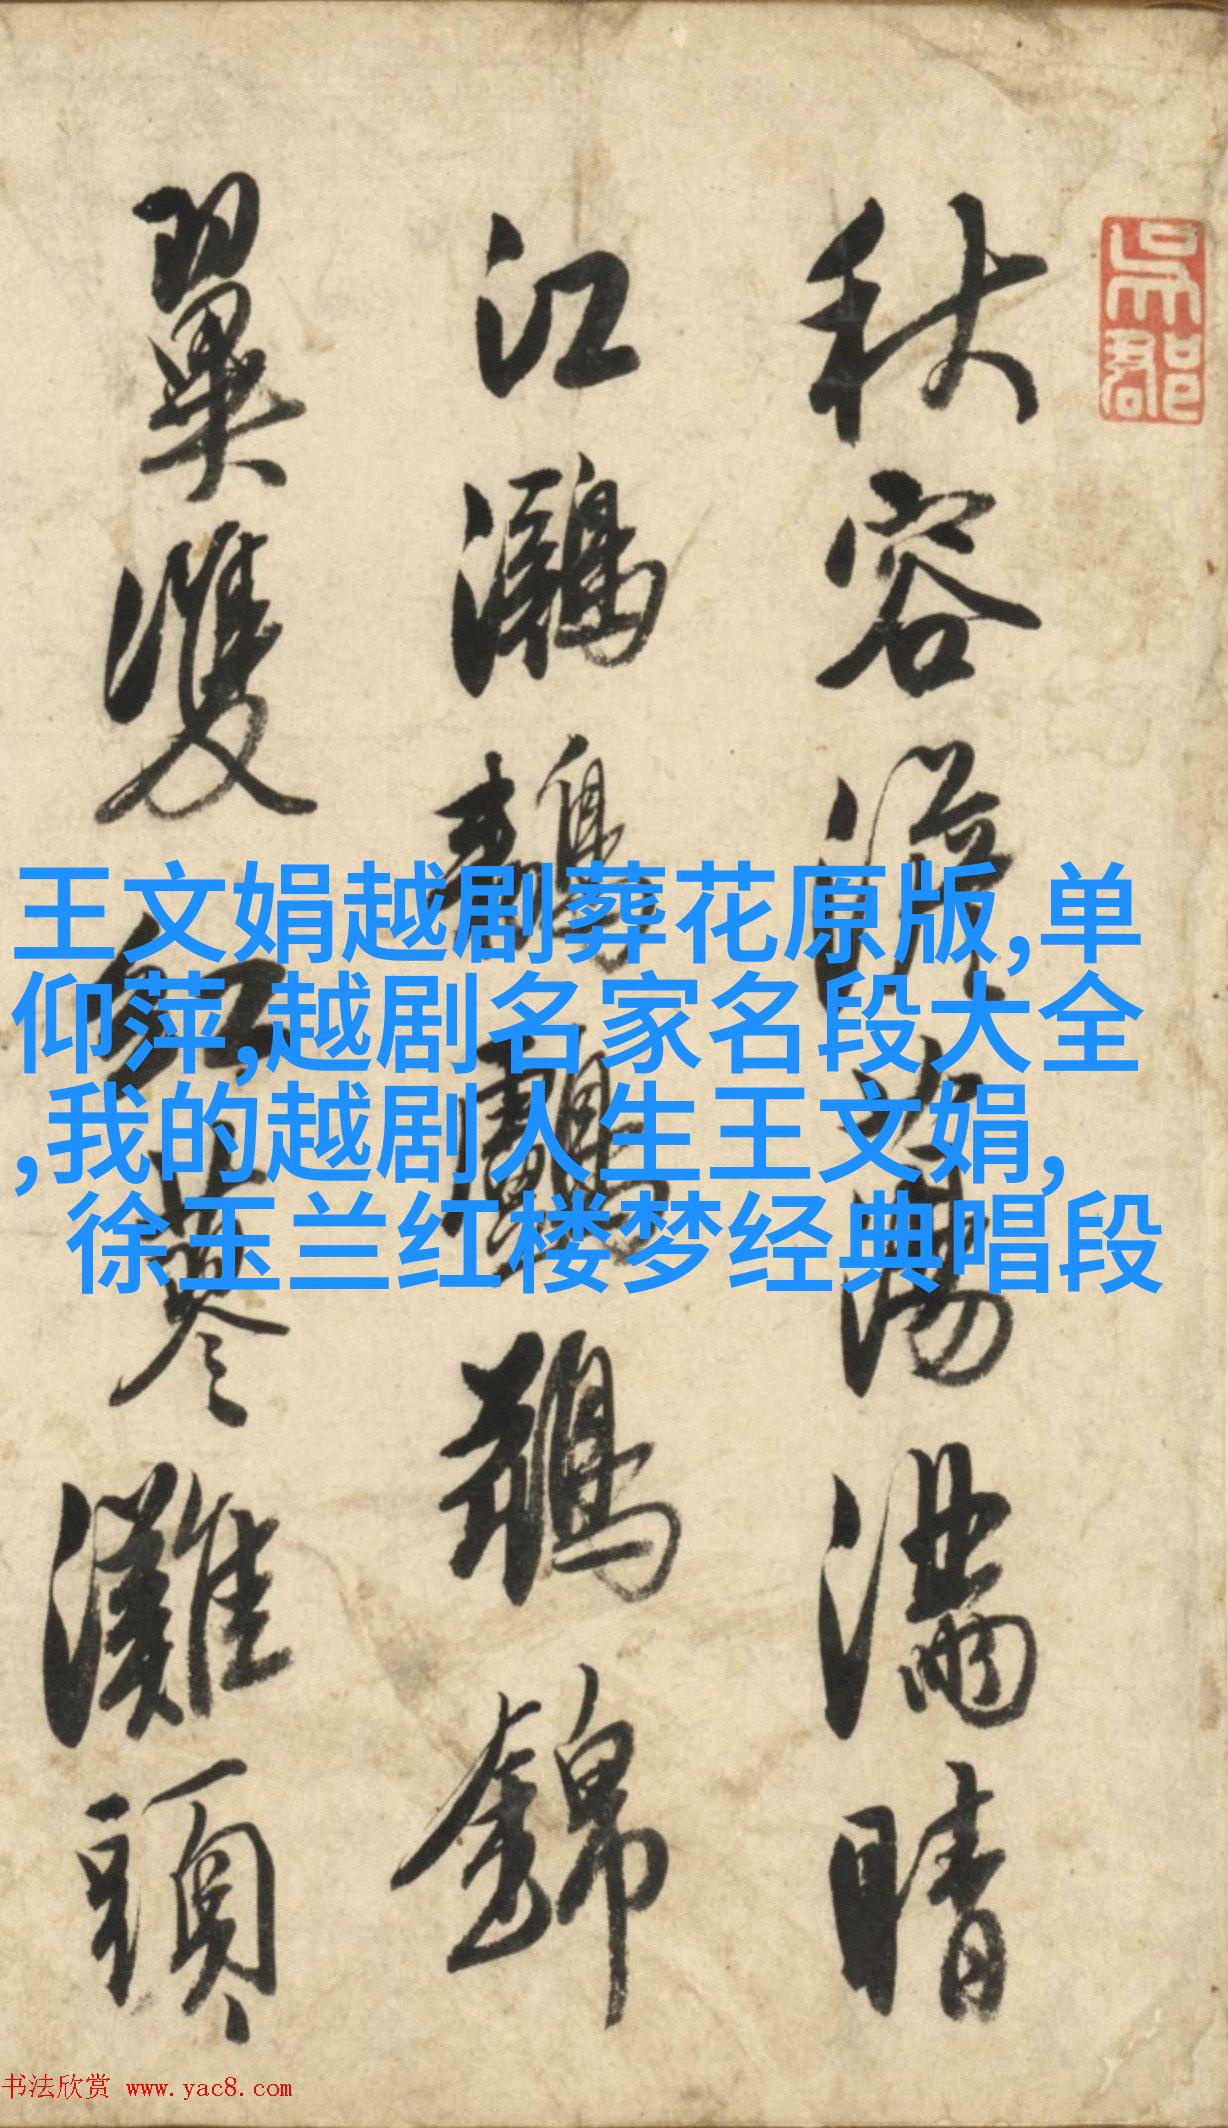 吳郡
秋容澹蕩滿晴
江鸂鶒鸕鶿錦
翼雙紅蓼灘頭
王文娟越剧葬花原版,单
仰萍,越剧名家名段大全
,我的越剧人生王文娟,
徐玉兰红楼梦经典唱段
书法欣赏 www.yac8.com